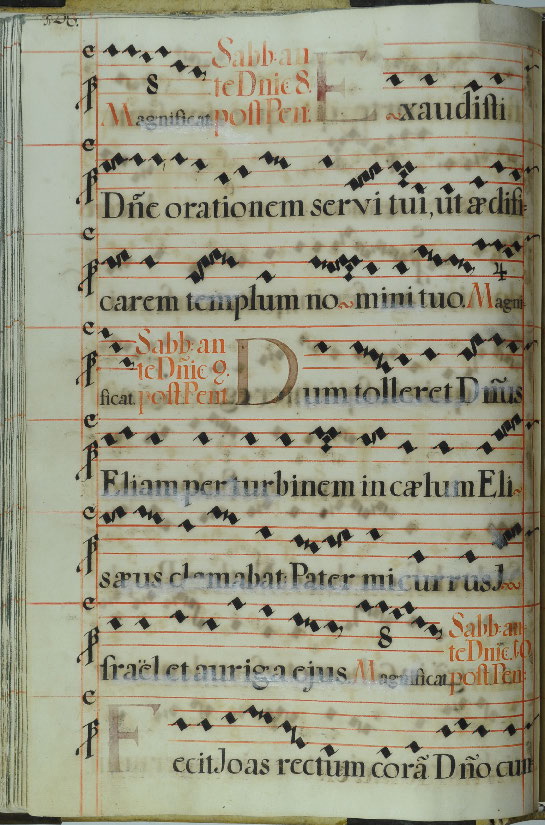 Sabb. an
te Dnic 8.
Magnificat. post Pent. Exaudisti
8
Dñe orationem servi tui, út ædifi-
carem templum no~mini tuo. Magni-
4
ficat. Sabb. an
te Dñic 9.
post Pent. Dum tolleret Dñus
Eliam per turbinem in cælum Eli~
sæus clamabat: Pater mi currus I~
sraël et auriga ejus. Magnificat.
8
Sabb. an
te Dnic. 10.
post Pent.
Fecit Joas rectum corã Dño cun